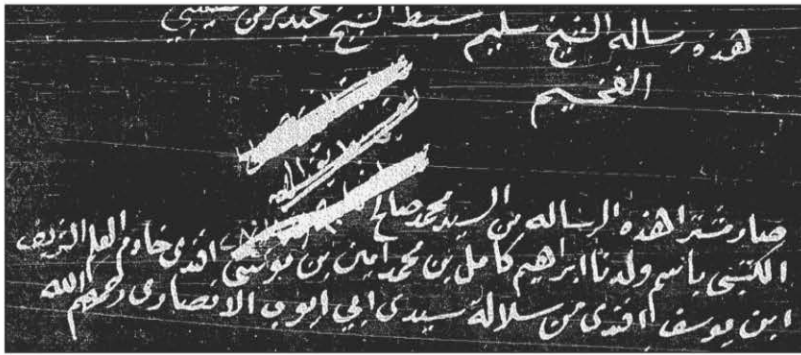 هذه رساله الشيخ سليم سبط الشيخ عبدالرحمن
الفخيم
صار مشترا هذه الرساله من السيد محمد صالح
الكتبى باسم ولدنا ابراهيم كامل بن محمد امين بن موسى افندى خادم العلم الشريف
ابن يوسف افندى من سلالة سيدى ابي ايوب الانصارى رحمهم الله